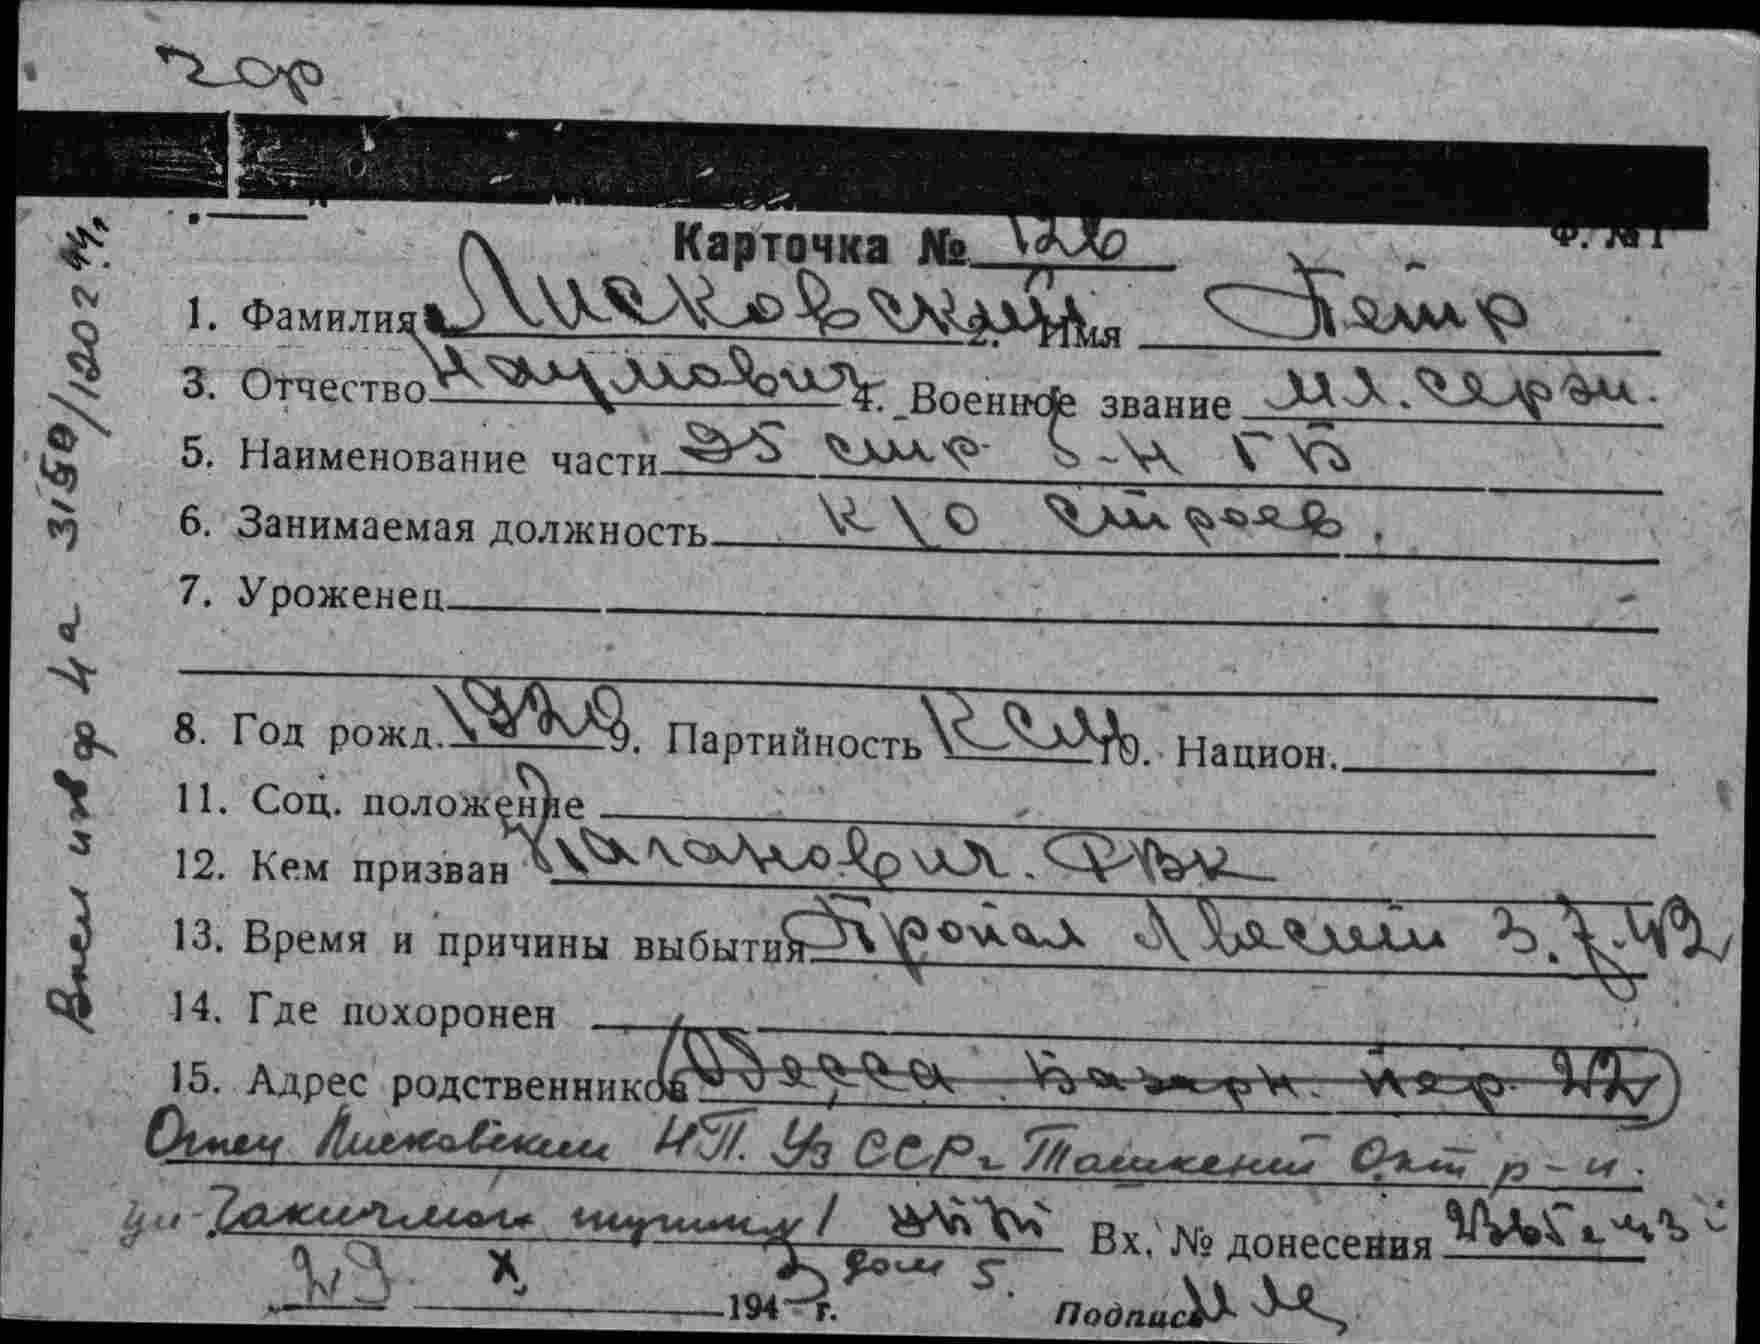 гор
Карточка № 126
Ф. № 1
1. Фамилия Лисковский 2. Имя Петр
3. Отчество Наумович 4. Военное звание мл. серж.
5. Наименование части 95 стр б-н ГБ
6. Занимаемая должность к/о строев.
7. Уроженец
8. Год рожд. 1920 9. Партийность КСМ 10. Национ.
11. Соц. положение
12. Кем призван Кагановия. РВК
13. Время и причины выбытия Пропал без 3.7.42
14. Где похоронен
15. Адрес родственников Одесса Базарн. пер. 22
Отец Лисковский Н.П. Уз ССР г Ташкент Окт р-н.
ул тупик 1 Вх. № донесения
29 X 3 дом 5
194 г. Подпись
31850/1200г 44,
Внем ф 4а